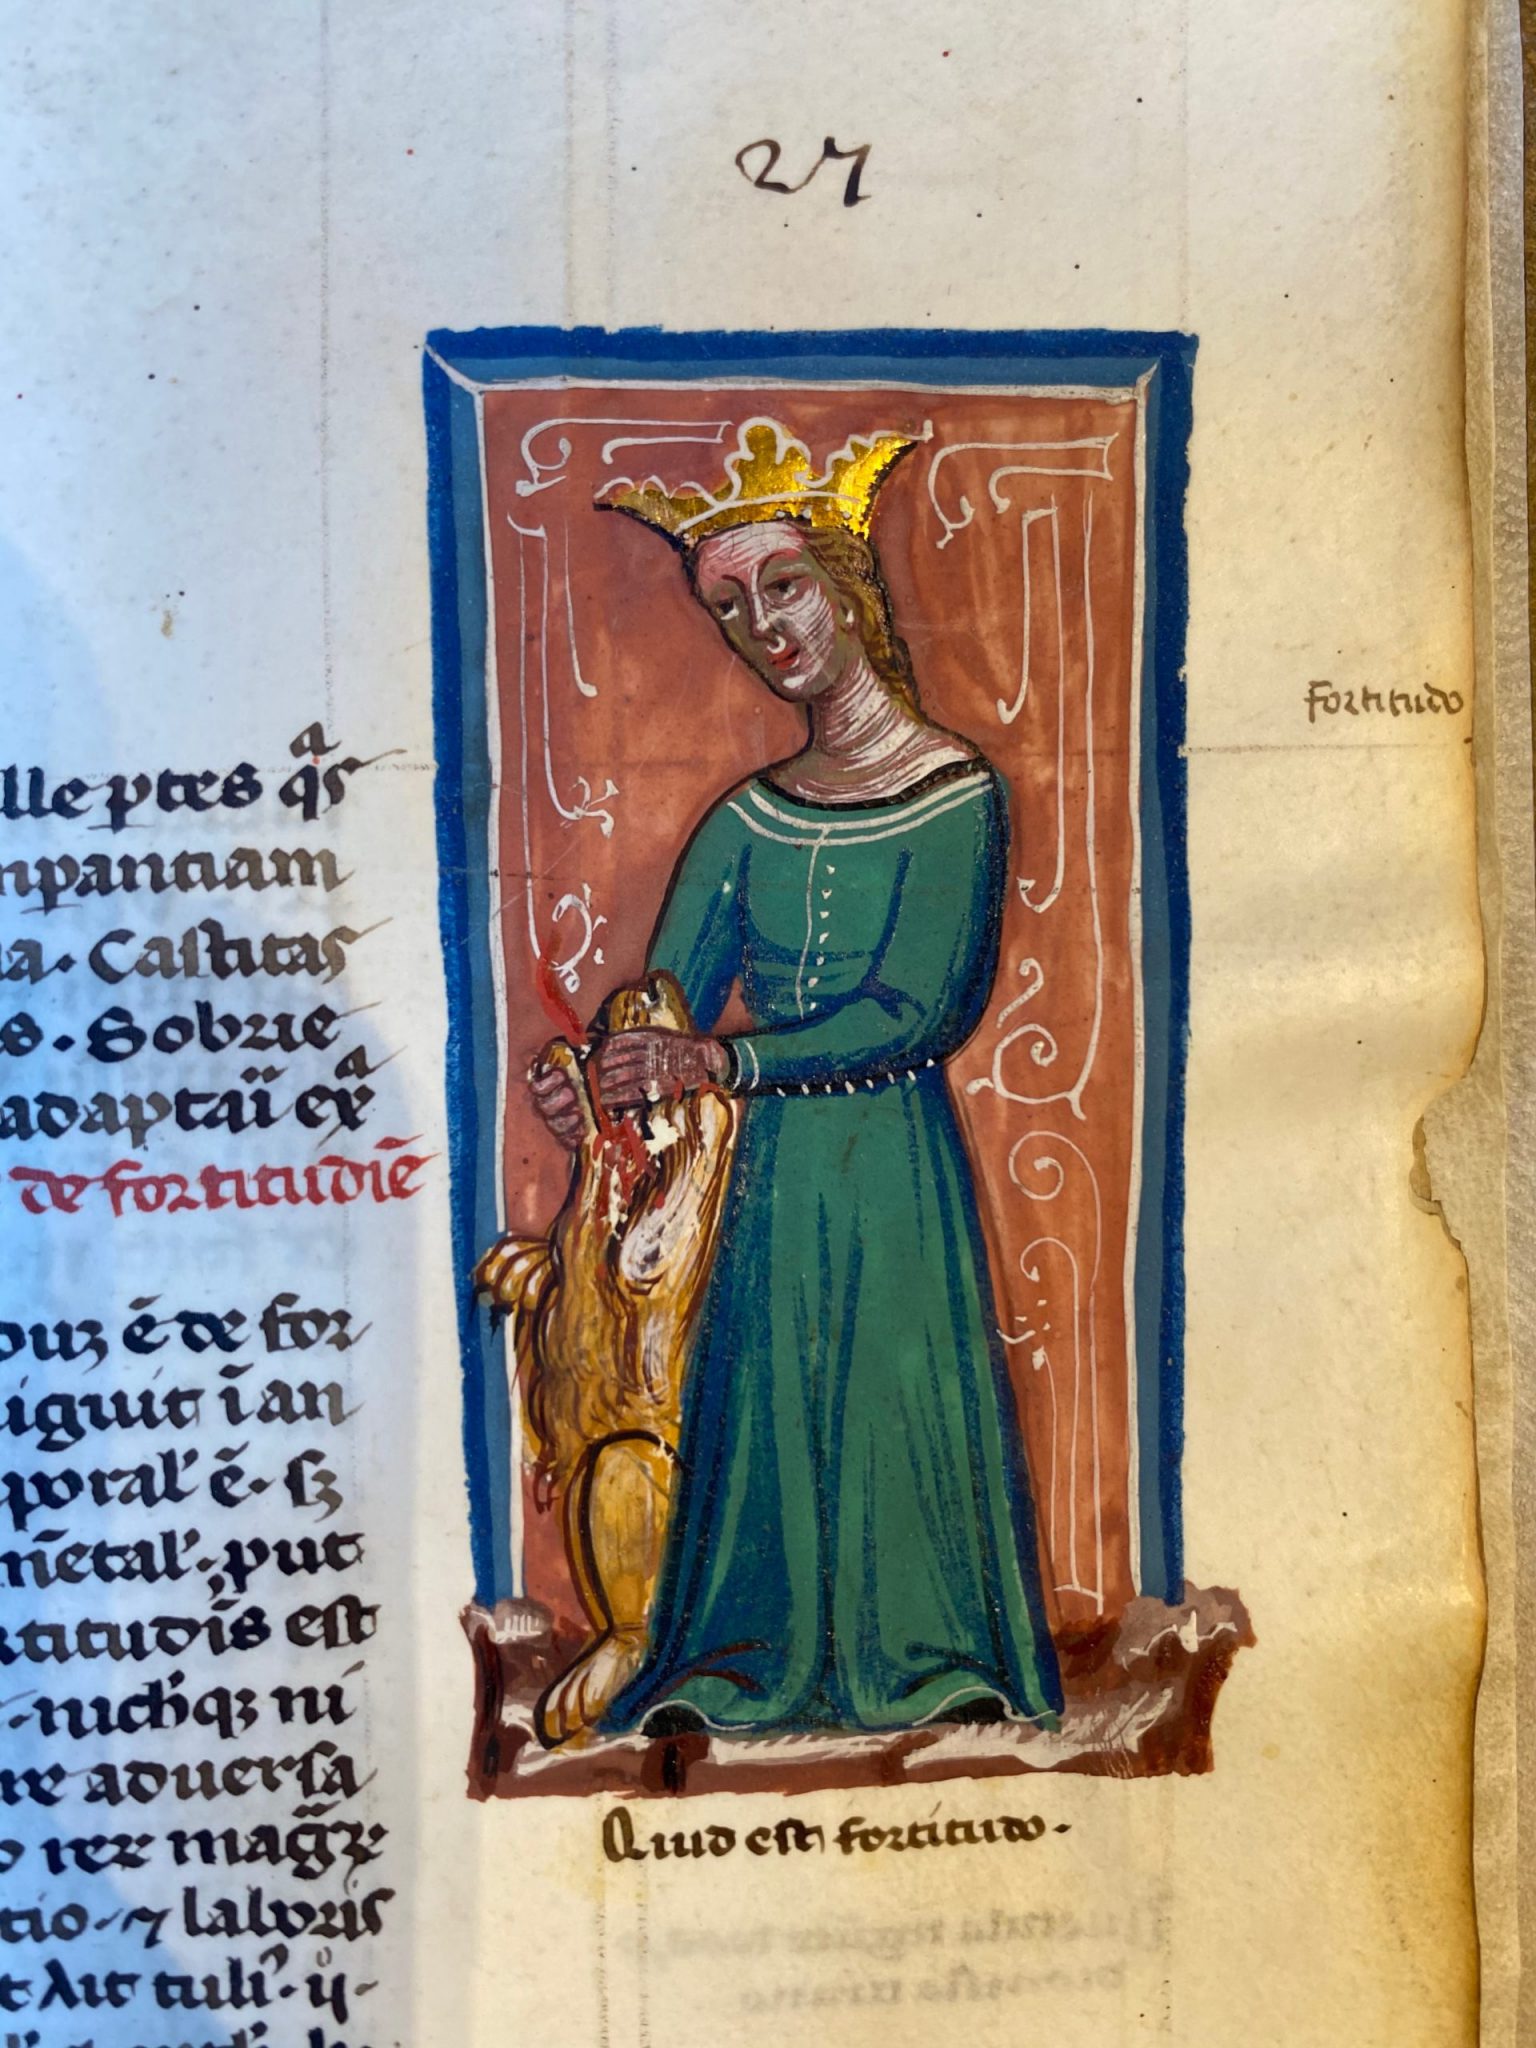 27
Fortitudo
lle ptes qͣs
mpantiam
a. Castitas
s. Sobrie
adaptāī exͣ
de fortitudīē
ouꝫ ē de for
iguit ī an
poral' ē. sꝫ
m̄etal'. put
rtitudīs est
nichꝗꝫ ni
re aduersa
magꝫ
tio. ⁊ laboris
t Ait tuli'. ij.
Quid est fortitudo.